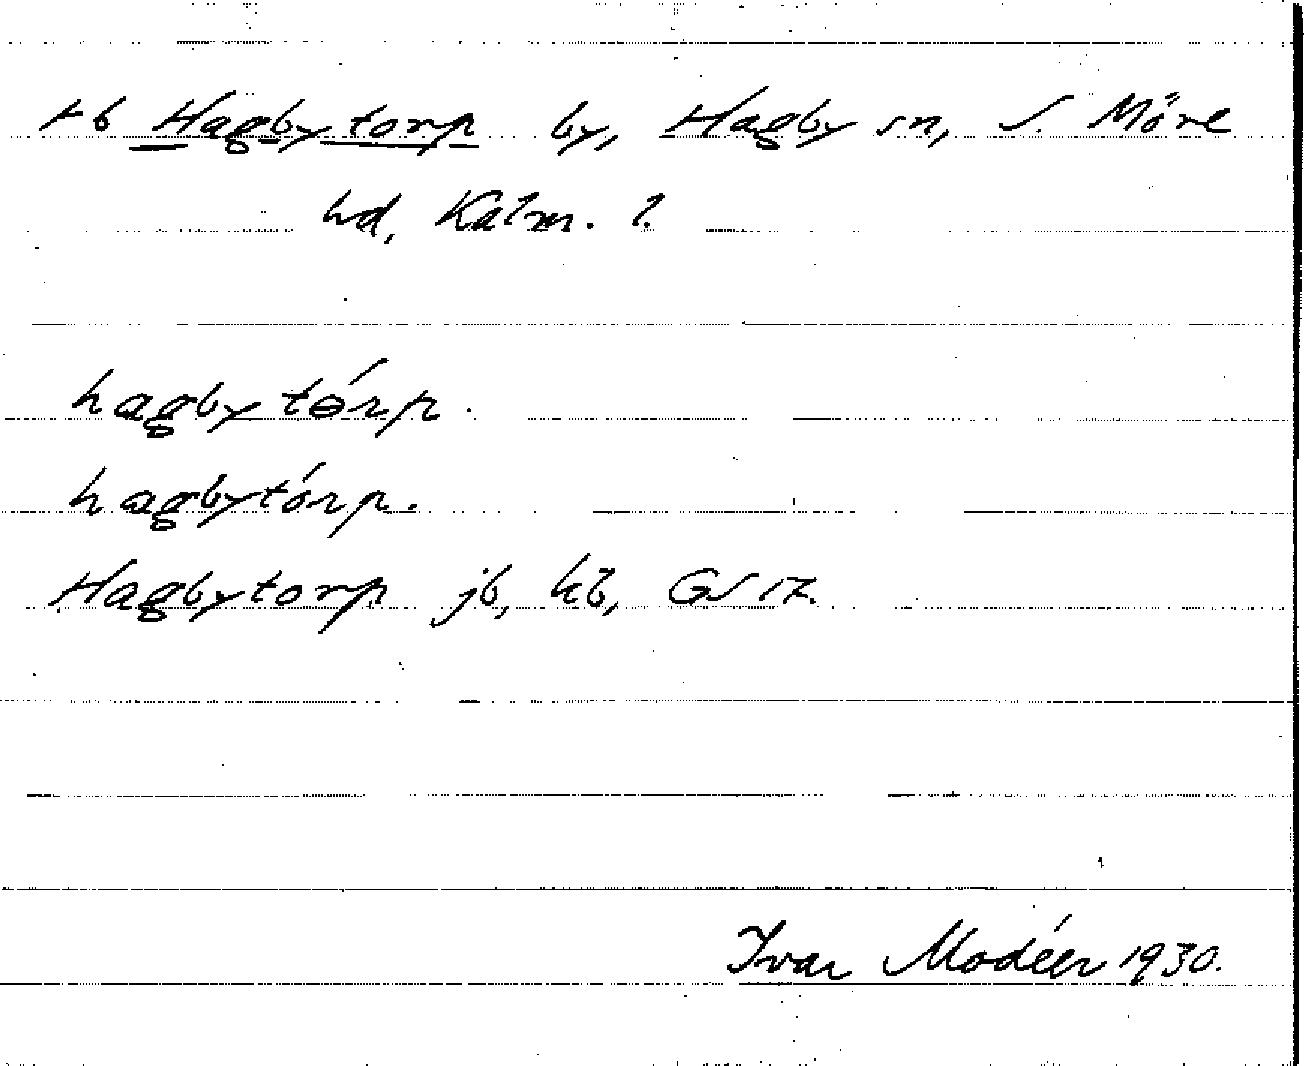 tb Hagbytorp by, Hagby sn, S. Möre
hd, Kalm. l.
hagbytórp.
hagbytórp.
Hagbytorp jb, kb, GS 17.
Ivar Modéer 1930.